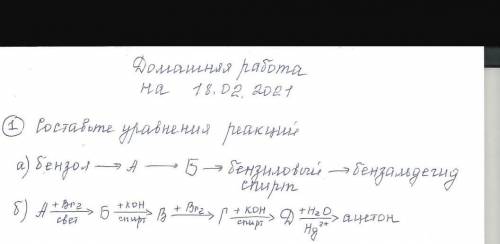 Домашняя работа
на 18.02.2021
① Составьте уравнения реакций
а) бензол → А → Б → бензиловый спирт → бензальдегид
б) А +Br₂ свет → Б +KOH спирт → В +Br₂ → Г +KOH спирт → Д +H₂O Hg²⁺ → ацетон